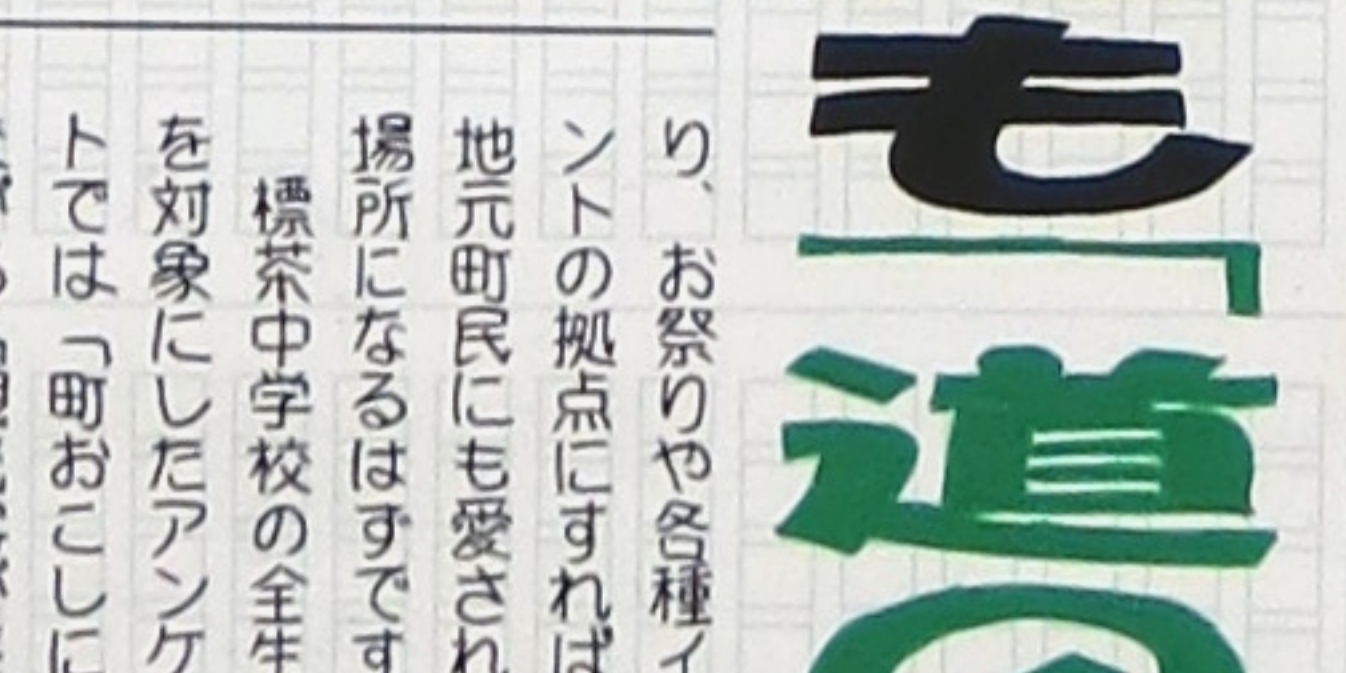 も「道の
り、お祭りや各種イ
ントの拠点にすれば
地元町民にも愛され
場所になるはずです
標茶中学校の全生
を対象にしたアンケ
トでは「町おこしに